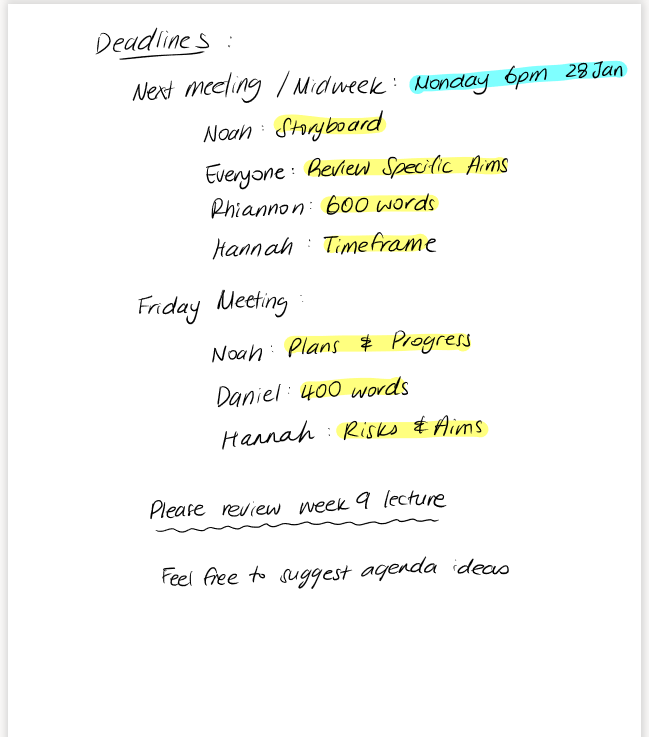 Deadlines :
Next meeting / Midweek : Monday 6pm 28 Jan
Noah : Storyboard
Everyone : Review Specific Aims
Rhiannon : 600 words
Hannah : Timeframe
Friday Meeting :
Noah : Plans & Progress
Daniel : 400 words
Hannah : Risks & Aims
Please review week 9 lecture
Feel free to suggest agenda ideas